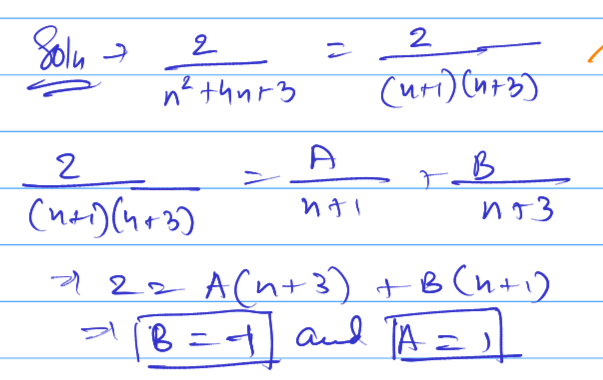 Soln → 2/(n²+4n+3) = 2/((n+1)(n+3))
2/((n+1)(n+3)) = A/(n+1) + B/(n+3)
⇒ 2 = A(n+3) + B(n+1)
⇒ B = -1 and A = 1